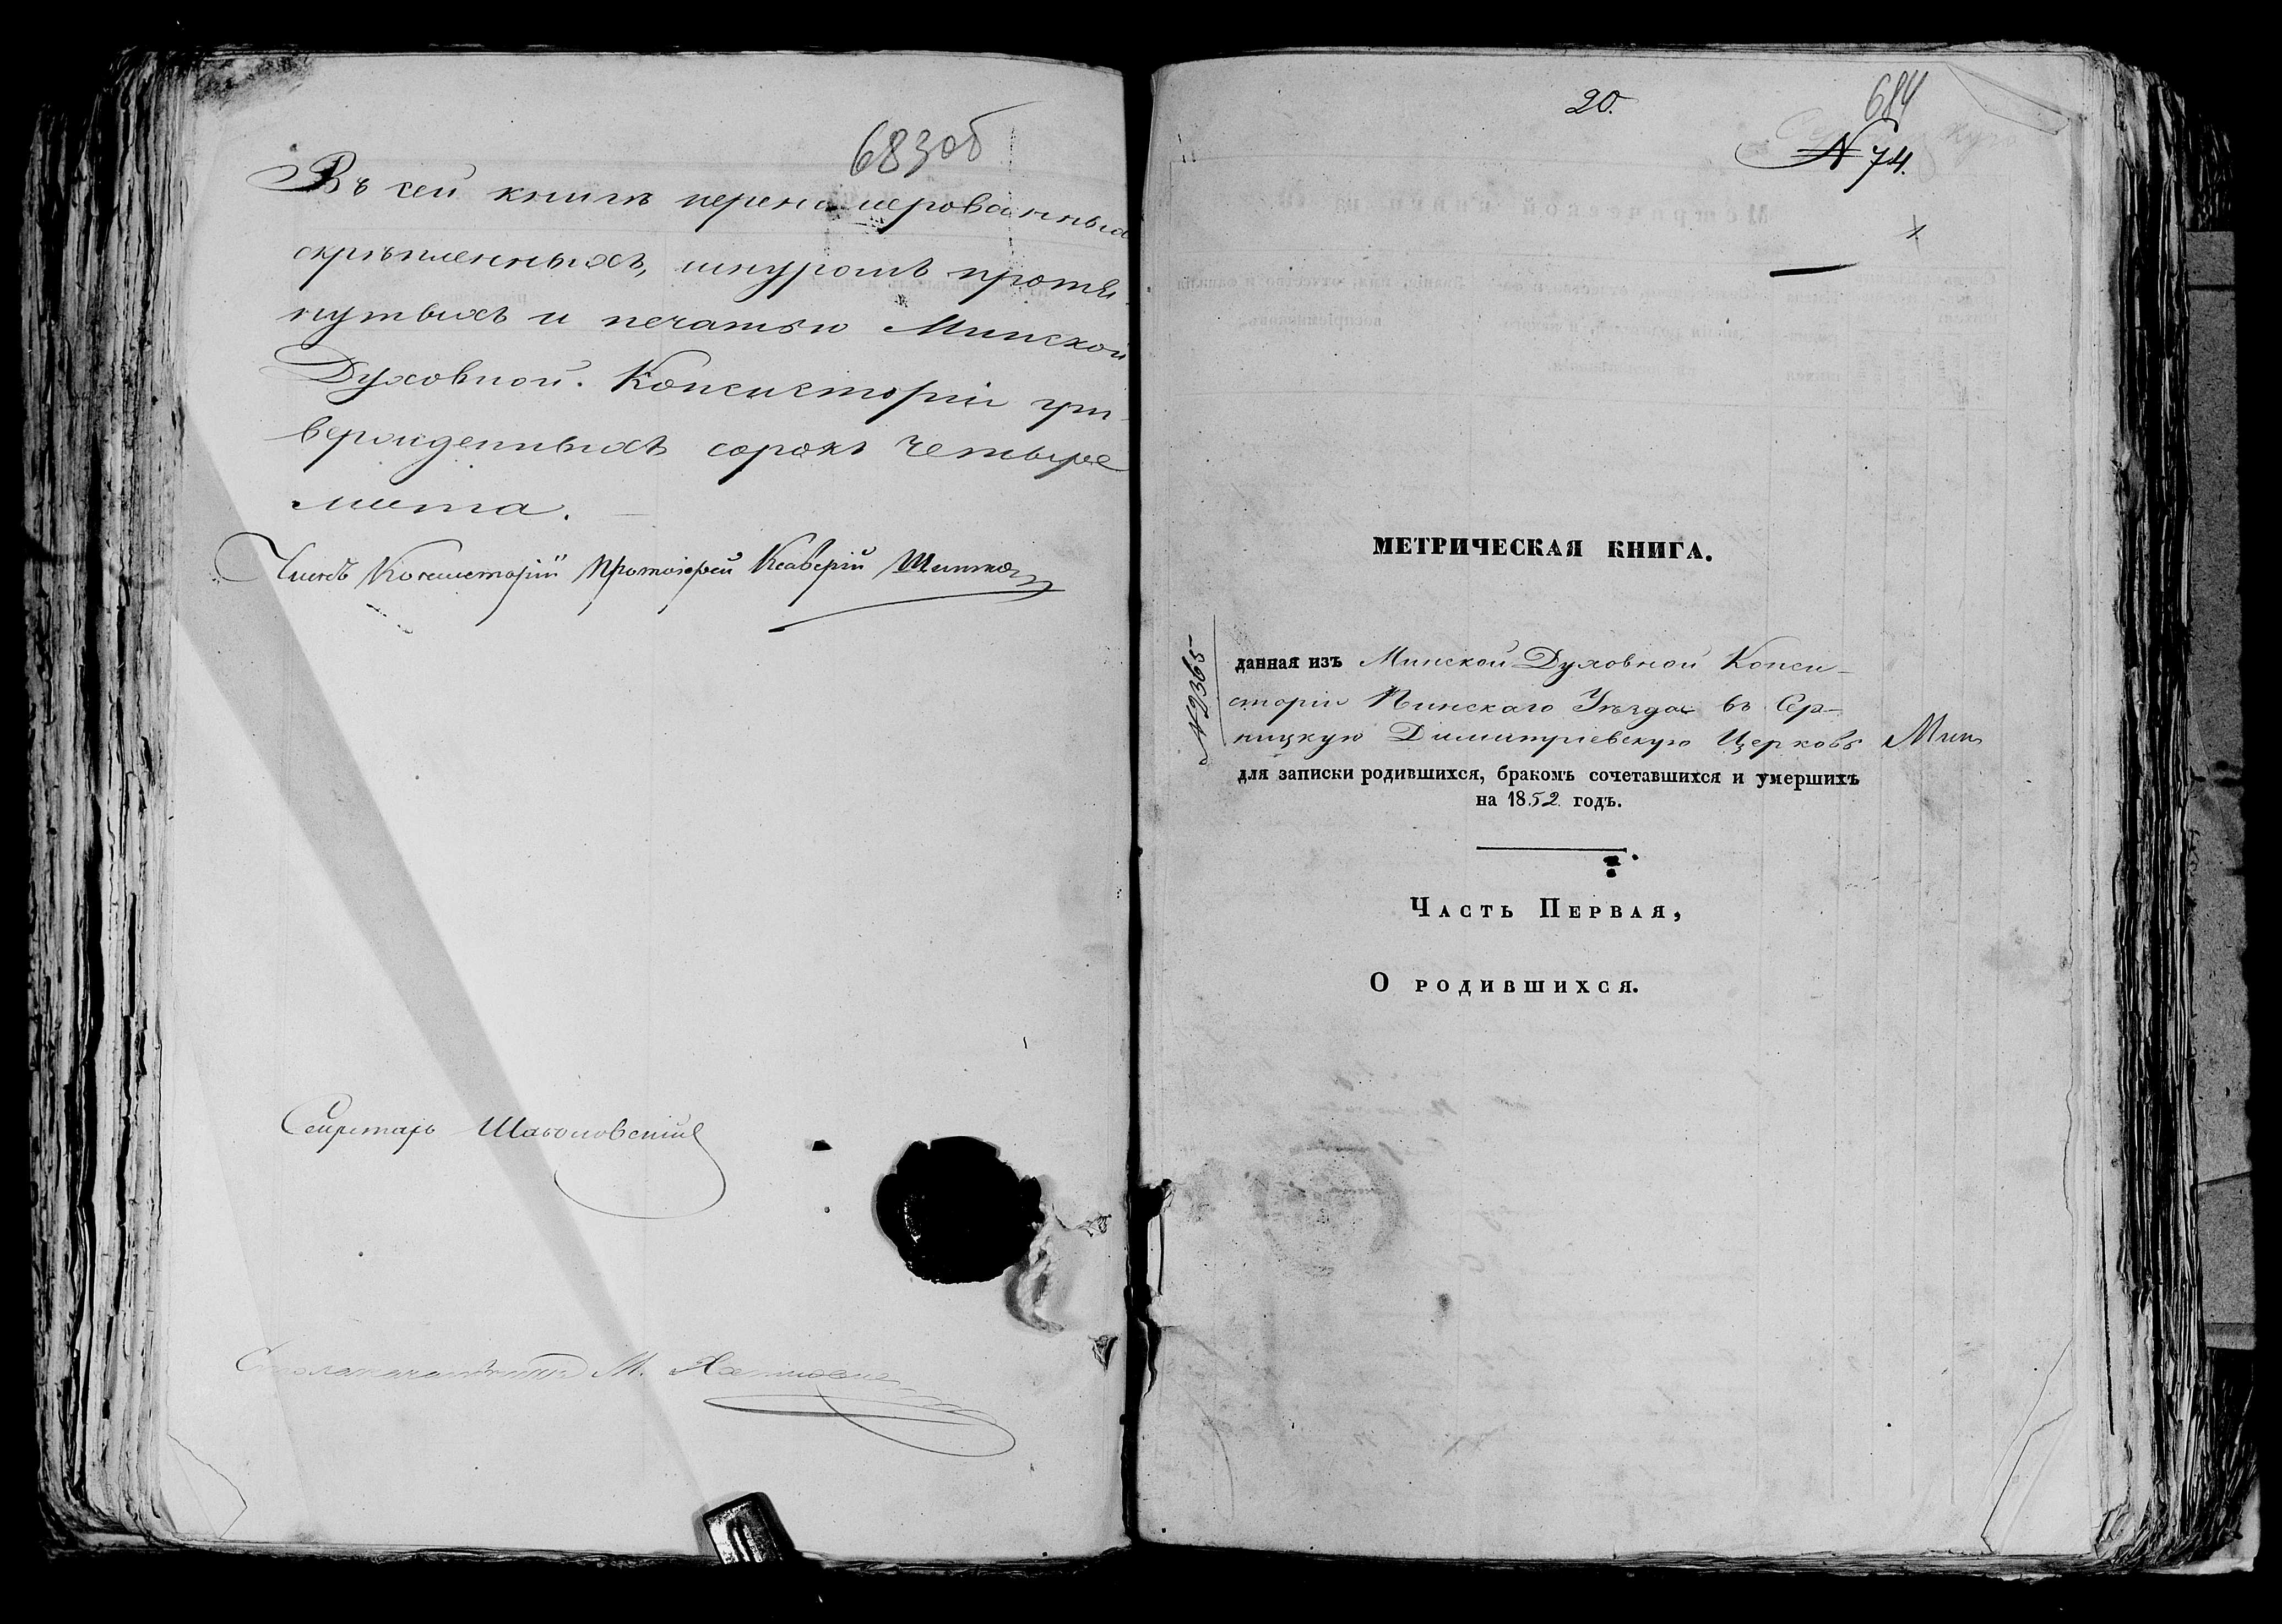 683об
Въ сей книгѣ перенумерованныхъ
скрѣпленныхъ, шнуромъ протя-
нутыхъ и печатью Минской
Духовной Консисторіи ут-
вержденныхъ сорокъ четыре
листа.
Членъ Консисторіи Протоіерей Ксаверій
Секретарь
Столоначальникъ М.
20.
684
№ 74.
1
МЕТРИЧЕСКАЯ КНИГА.
№ 2365
данная изъ Минской Духовной Конси-
сторіи Пинскаго Уѣзда въ Сер-
ницкую Димитріевскую Церковь Мин
для записки родившихся, бракомъ сочетавшихся и умершихъ
на 1852 годъ.
Часть Первая,
О родившихся.